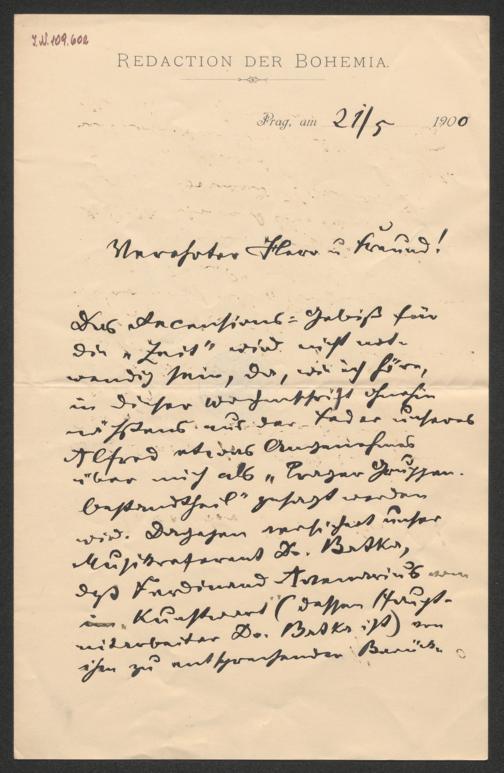 I.N.109.602
REDACTION DER BOHEMIA.
Prag, am 21/5 1900
Verehrter Herr u. Freund!
Das Recensions-Gebiß für
die „Zeit" wird nicht not-
wendig sein, da, wie ich höre,
in dieser Wochenschrift ohnehin
nächstens aus der Feder unseres
Alfred etwas Angenehmes
über mich als „Prager Gruppen-
bestandtheil" gesagt werden
wird. Dagegen versichert unser
Musikreferent Dr. Batka,
daß Ferdinand Avenarius vom
„Kunstwart" (dessen Haupt-
mitarbeiter Dr. Batka ist) von
ihm zu entsprechender Berück-